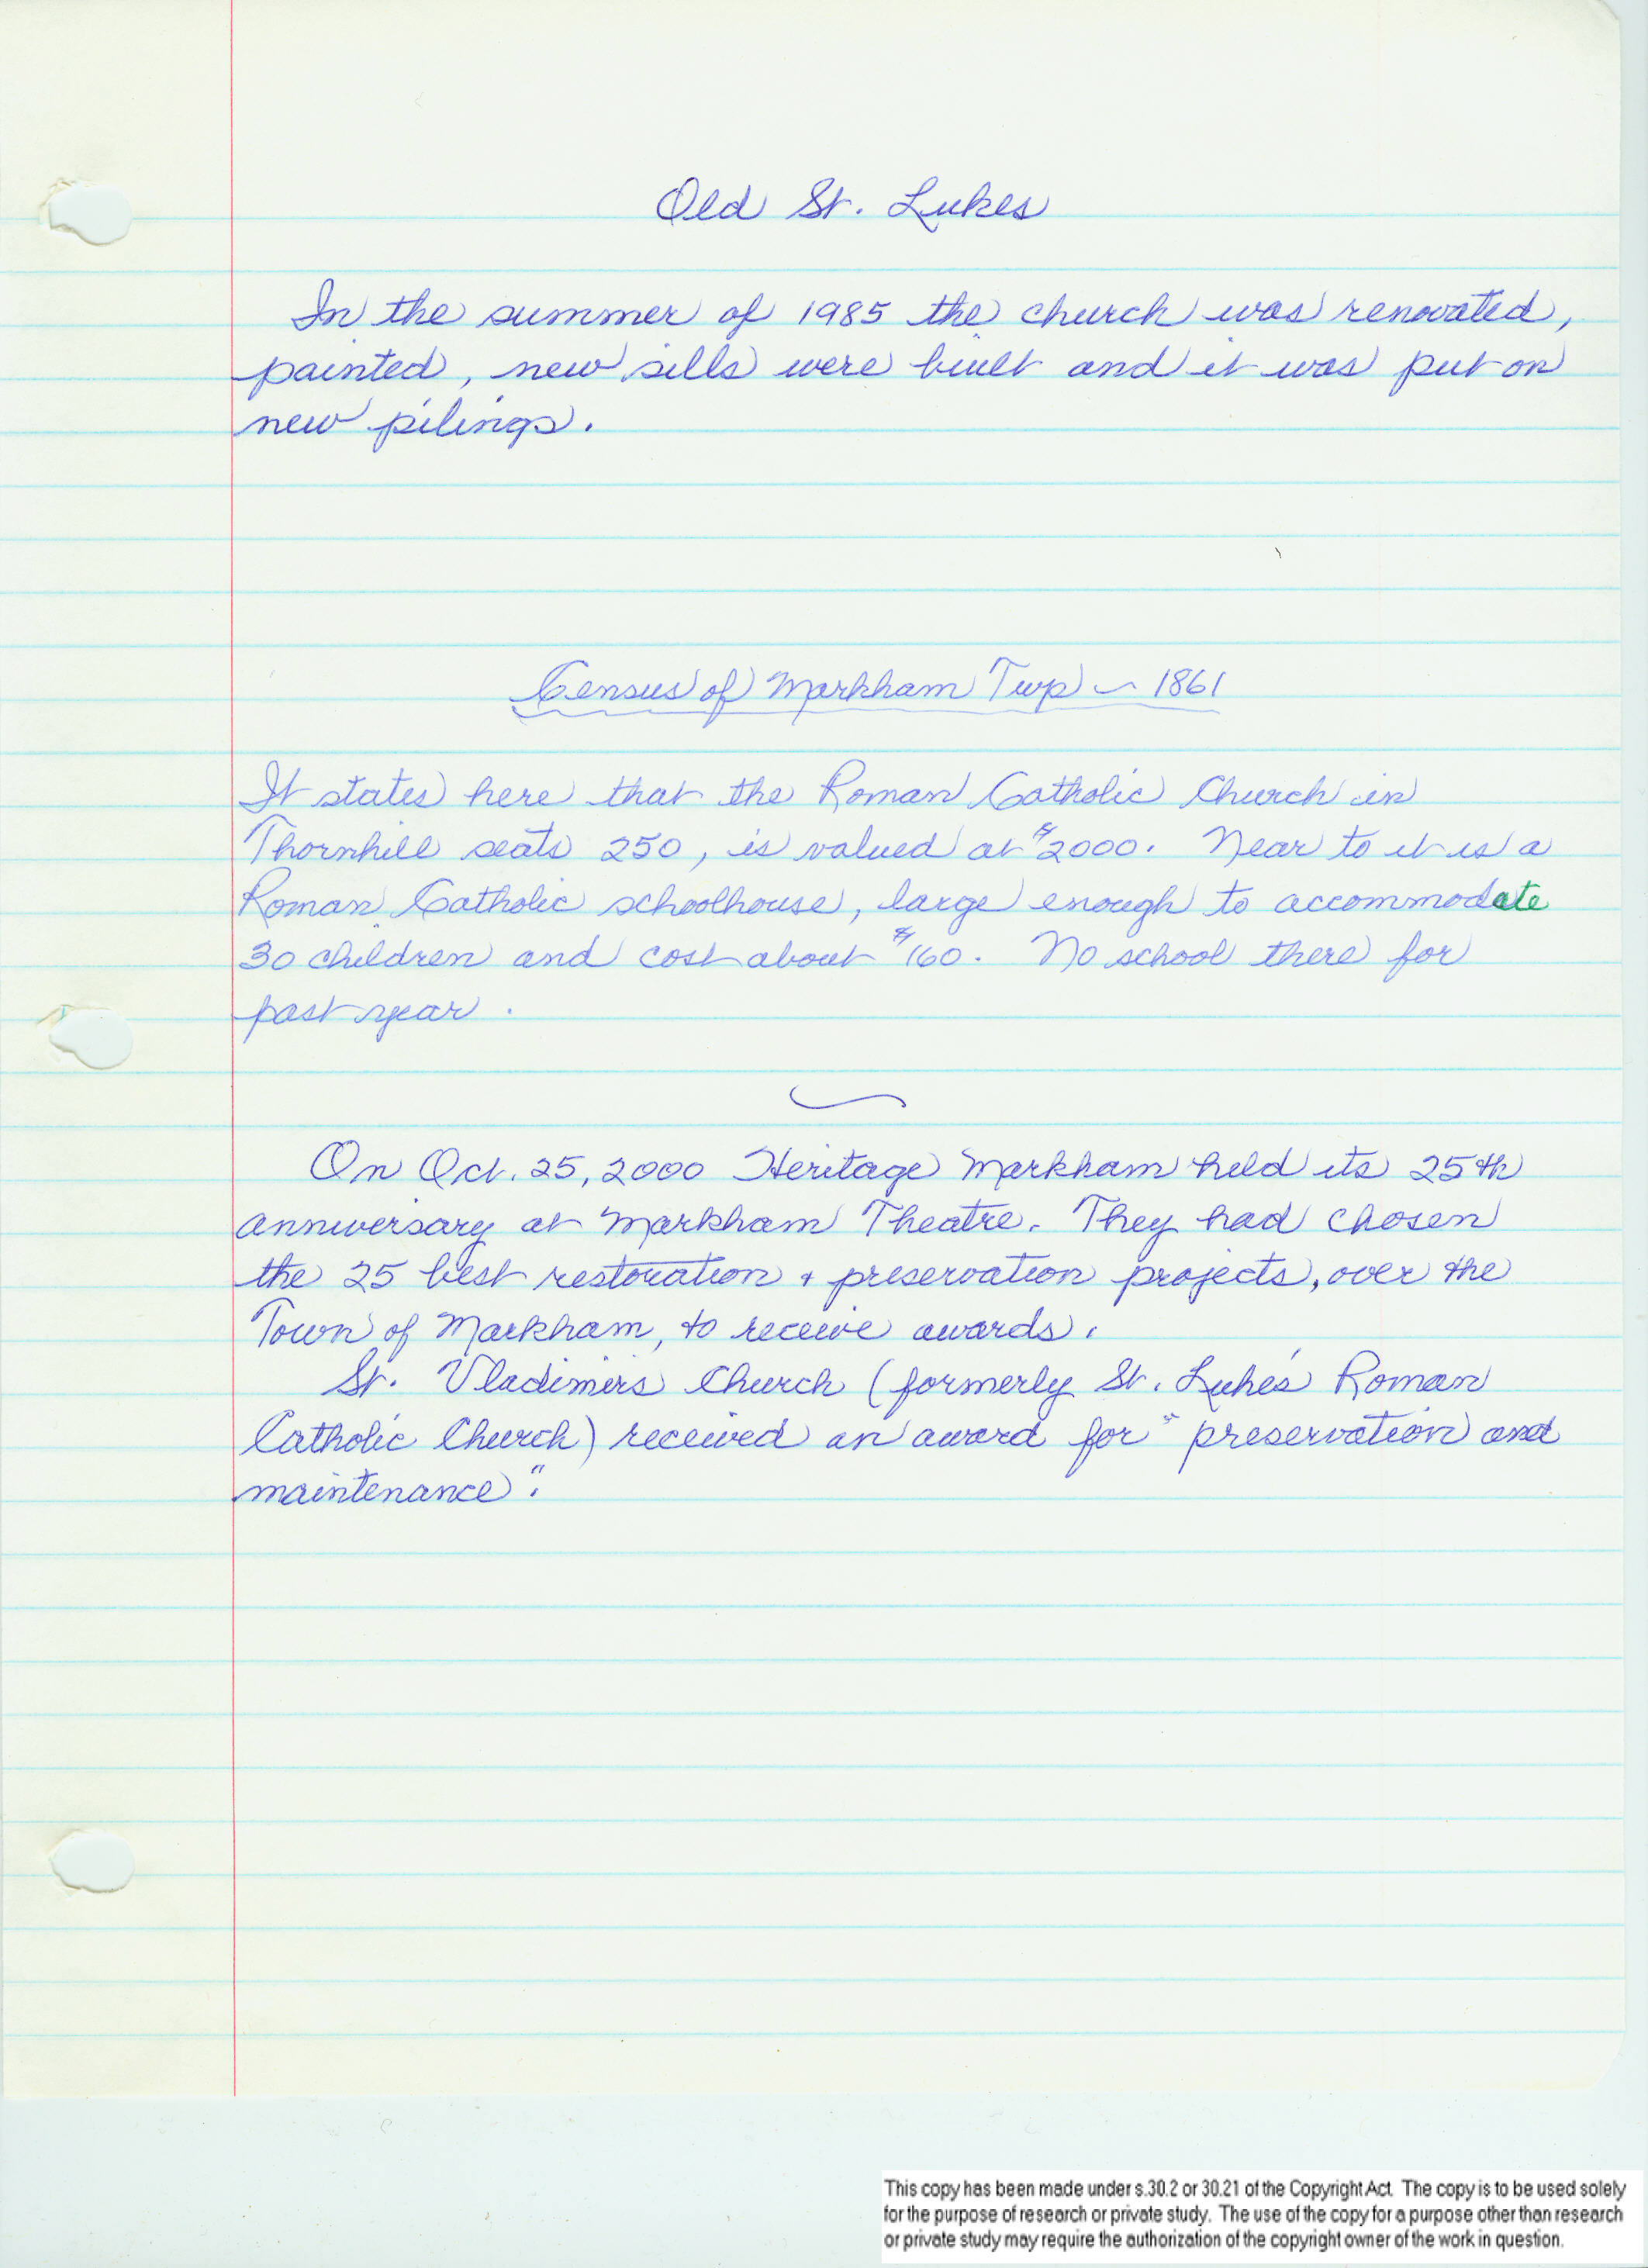 Old St. Lukes
In the summer of 1985 the church was renovated,
painted, new sills were built and it was put on
new pilings.
Census of Markham Twp - 1861
It states here that the Roman Catholic Church in
Thornhill seats 250, is valued at $2000. Near to it is a
Roman Catholic schoolhouse, large enough to accommodate
30 children and cost about $160. No school there for
past year.
On Oct. 25, 2000 Heritage Markham held its 25th
anniversary at Markham Theatre. They had chosen
the 25 best restoration + preservation projects, over the
Town of Markham, to receive awards.
St. Vladimirs Church (formerly St. Luke's Roman
Catholic Church) received an award for "preservation and
maintenance".
This copy has been made under s.30.2 or 30.21 of the Copyright Act. The copy is to be used solely
for the purpose of research or private study. The use of the copy for a purpose other than research
or private study may require the authorization of the copyright owner of the work in question.